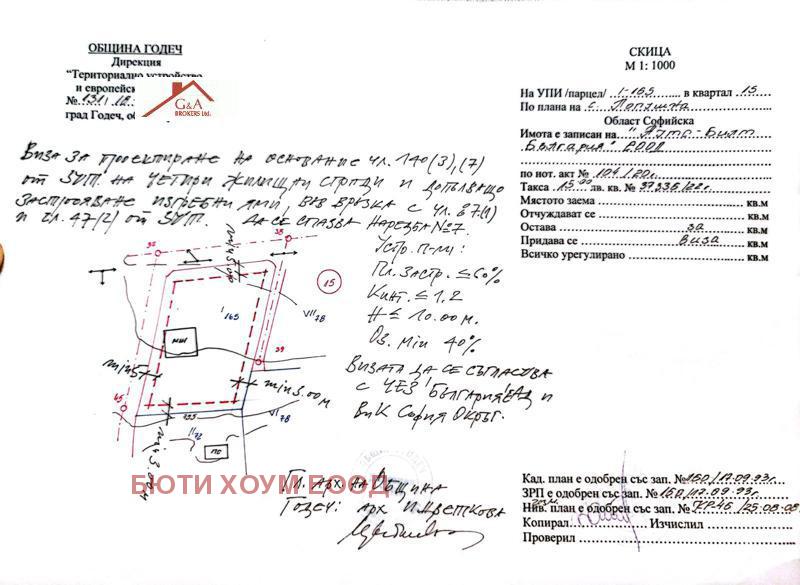 ОБЩИНА ГОДЕЧ
Дирекция
"Територијално устройство
и европейск
№ 131/
град Годеч, об
G&A
BROKERS Ltd.
СКИЦА
М 1: 1000
На УПИ /парцел/ I-165 в квартал 15
По плана на с.
Област Софийска
Имота е записан на
България" ЕООД
по нот. акт № 104/20г.
Такса 15.00 лв. кв. №
Мястото заема кв.м
Отчуждават се кв.м
Остава за кв.м
Придава се виза кв.м
Всичко урегулирано кв.м
Виза за проектиране на основание чл. 140(3),(7)
от ЗУТ. на четири жилищни сгради и допълващо
застрояване изгребни ями, във връзка с чл. 87(1)
и чл. 47(2) от ЗУТ. Да се спазва Наредба №7.
Устр. п-ли:
Пл. застр. ≤ 60%
Кинт. ≤ 1,2
H ≤ 10.00 м.
Оз. min 40%
Визата да се съгласова
с ЧЕЗ България ЕАД и
ВиК София Окръг.
38
15
I 165
VII 78
МЖ
39
min 3.00 м
VI 78
II 72
ПО
БЮТИ ХОУМ ЕООД
Гл. арх. на Община
Годеч: арх. И. Цветкова
Кад. план е одобрен със зап. № 150/17.09.93г.
ЗРП е одобрен със зап. № 150/17.09.93г.
Нив. план е одобрен със зап. №
Копирал Изчислил
Проверил